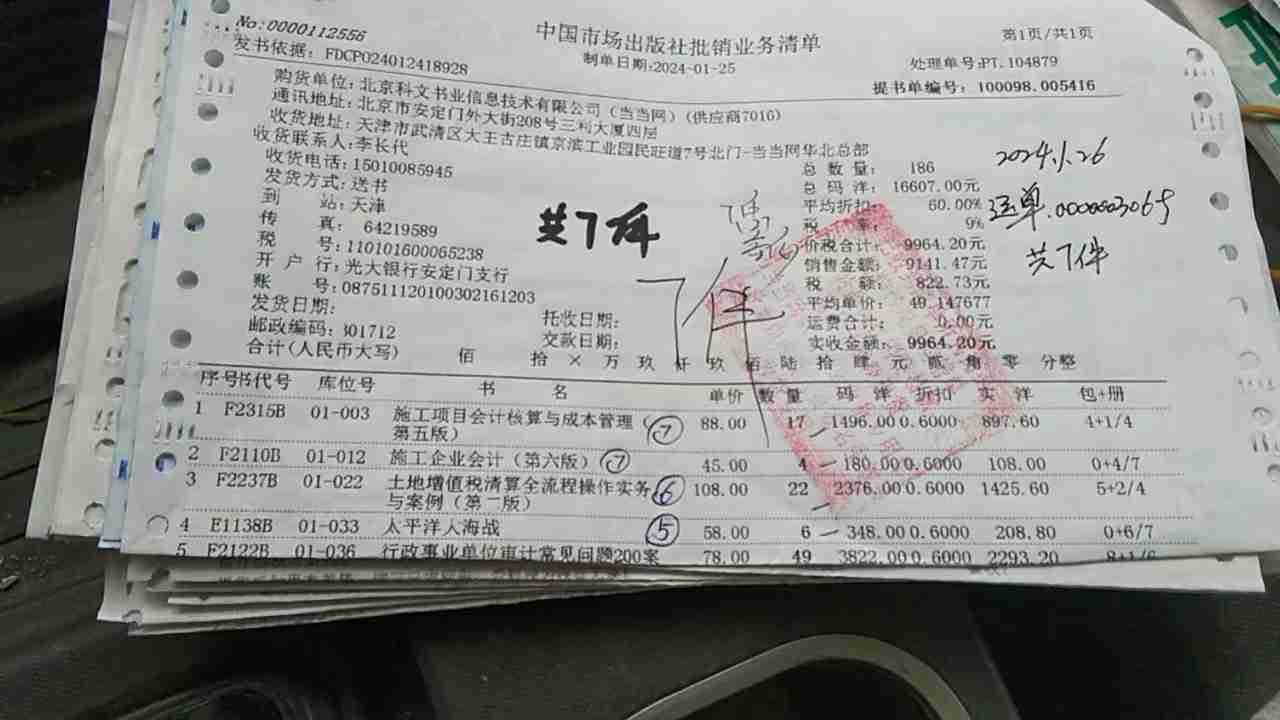 No:0000112556
中国市场出版社批销业务清单
第1页/共1页
发书依据: FDCP024012418928
制单日期:2024-01-25
处理单号:PT.104879
提书单编号: 100098.005416
购货单位:北京科文书业信息技术有限公司(当当网)(供应商7016)
通讯地址:北京市安定门外大街208号三利大厦四层
收货地址:天津市武清区大王古庄镇京滨工业园民旺道7号北门-当当网华北总部
收货联系人:李长代
收货电话:15010085945
发货方式:送书
到 站:天津
传 真: 64219589
税 号:110101600065238
开 户 行:光大银行安定门支行
账 号:087511120100302161203
发货日期:
邮政编码:301712
托收日期:
交款日期:
总 数 量: 186
总 码 洋: 16607.00元
平均折扣: 60.00%
税 率: 9%
价税合计: 9964.20元
销售金额: 9141.47元
税 额: 822.73元
平均单价: 49.147677
运费合计: 0.00元
实收金额: 9964.20元
2024.1.26
运单.0000003065
共7件
共7件
7件
合计(人民币大写) 佰 拾 × 万 玖 仟 玖 佰 陆 拾 肆 元 贰 角 零 分整
序号 书代号 库位号 书 名 单价 数量 码 洋 折扣 实 洋 包+册
1 F2315B 01-003 施工项目会计核算与成本管理( ⑦ 88.00 17 1496.00 0.6000 897.60 4+1/4
第五版)
2 F2110B 01-012 施工企业会计(第六版) ⑦ 45.00 4 180.00 0.6000 108.00 0+4/7
3 F2237B 01-022 土地增值税清算全流程操作实务 ⑥ 108.00 22 2376.00 0.6000 1425.60 5+2/4
与案例(第二版)
4 E1138B 01-033 太平洋大海战 ⑤ 58.00 6 348.00 0.6000 208.80 0+6/7
5 F2122B 01-036 行政事业单位审计常见问题200案 78.00 49 3822.00 0.6000 2293.20 8+1/6